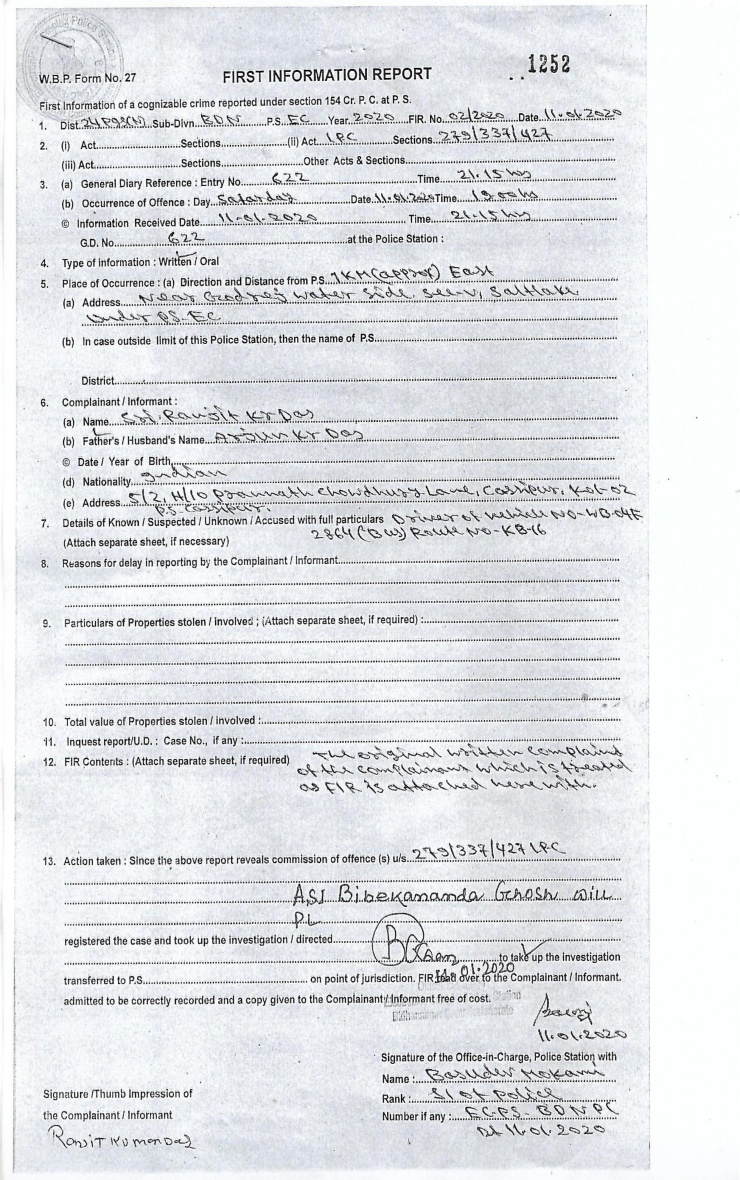 W.B.P. Form No. 27
FIRST INFORMATION REPORT
1252
First Information of a cognizable crime reported under section 154 Cr. P. C. at P. S.
1. Dist. 24 Pgs(N) Sub-Divn. BDN P.S. EC Year. 2020 FIR. No. 02/2020 Date 11.01.2020
2. (i) Act Sections (ii) Act. IPC Sections 279/337/427
(iii) Act Sections Other Acts & Sections
3. (a) General Diary Reference : Entry No. 622 Time 21.15 hrs
(b) Occurrence of Offence : Day Saturday Date 11.01.2020 Time
© Information Received Date 11-01-2020 Time 21.15 hrs
G.D. No. 622 at the Police Station :
4. Type of information : Written / Oral
5. Place of Occurrence : (a) Direction and Distance from P.S. 1 KM (approx) East
(a) Address Near Godrej water Side, Sec-V, Saltlake
under PS. EC
(b) In case outside limit of this Police Station, then the name of P.S.
District
6. Complainant / Informant :
(a) Name Sri. Ranjit Kr Das
(b) Father's / Husband's Name Arjun Kr Das
© Date / Year of Birth
(d) Nationality Indian
(e) Address 5/2, H/10 Prannath Chowdhury Lane, Cossipur, Kol-02
P.S. Cossipur.
7. Details of Known / Suspected / Unknown / Accused with full particulars Driver of vehicle NO-WB-04F
(Attach separate sheet, if necessary) 2864 (Bus) Route NO-KB-16
8. Reasons for delay in reporting by the Complainant / Informant
9. Particulars of Properties stolen / involved ; (Attach separate sheet, if required) :
10. Total value of Properties stolen / involved :
11. Inquest report/U.D. : Case No., if any :
12. FIR Contents : (Attach separate sheet, if required) The original written complaint
of the complainant which is treated
as FIR is attached here with.
13. Action taken : Since the above report reveals commission of offence (s) u/s. 279/337/427 IPC
ASI Bibekananda Ghosh will
PL
registered the case and took up the investigation / directed
to take up the investigation
transferred to P.S. on point of jurisdiction. FIR read over to the Complainant / Informant.
admitted to be correctly recorded and a copy given to the Complainant / Informant free of cost.
11.01.2020
Signature of the Office-in-Charge, Police Station with
Name : Basudev Mokami
Rank : SI of Police
Number if any : EC-PS-BDNPC
Dt 11.01.2020
Signature /Thumb Impression of
the Complainant / Informant
Ranjit Kumar Das